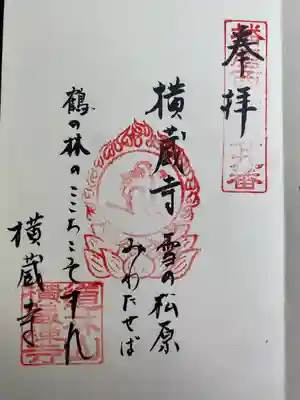 奉拝
横蔵寺 雪の松原
みわたせば
鶴の林のここちこそすれ
横蔵寺